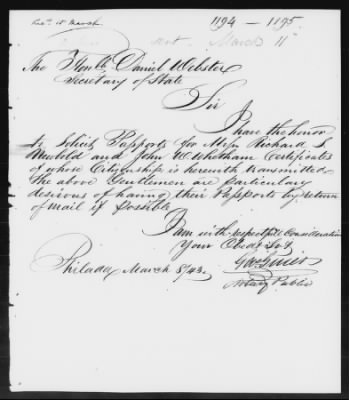 Rec'd 11 March
1194 — 1195.
sent March 11
The Honble Daniel Webster
Secretary of State
Sir
I have the honor
to solicit Passports for Messrs Richard S.
Newbold and John W. Whetham Certificates
of whose Citizenship is herewith transmitted
the above Gentlemen are particular
desirous of having their Passports by return
of mail if possible
I am with respectful Consideration
Your Obedt Svt
Philada March 8/43.
Notary Public